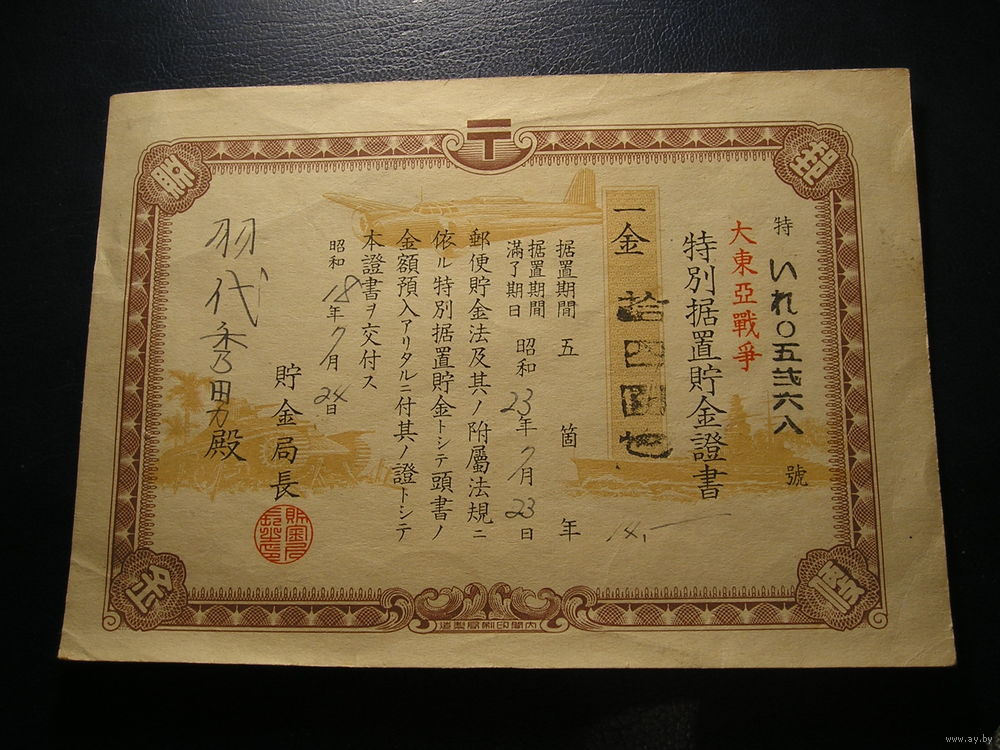 特 いれ〇五弐六八 號
大東亞戰爭
特別据置貯金證書
一金 拾四圓也
14.
据置期間 五箇年
据置期間
滿了期日 昭和23年7月23日
郵便貯金法及其ノ附屬法規ニ
依ル特別据置貯金トシテ頭書ノ
金額預入アリタルニ付其ノ證トシテ
本證書ヲ交付ス
昭和18年7月24日
貯金局長
羽代 田 殿
内閣印刷局製造
www.ay.by